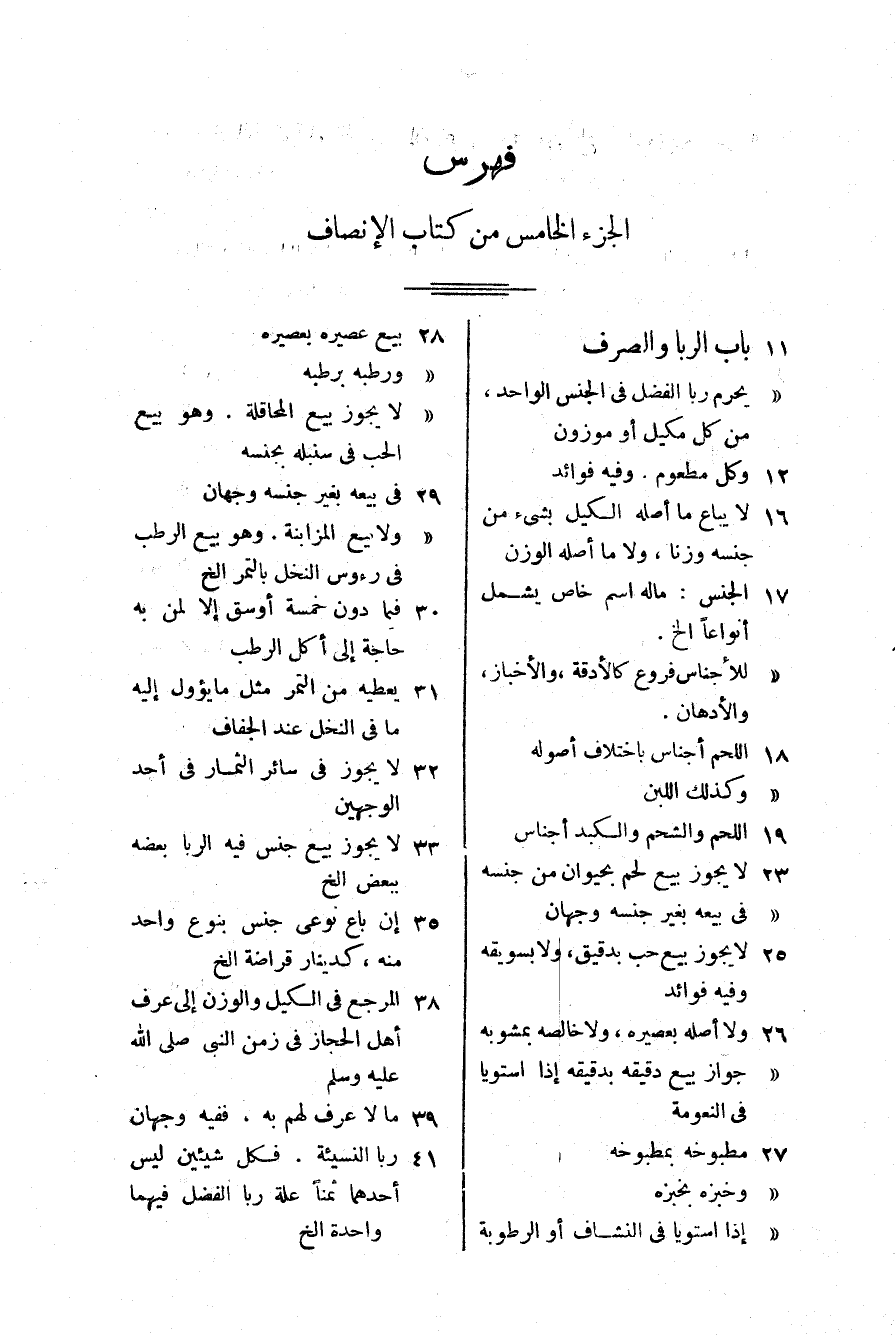 فهرس
الجزء الخامس من كتاب الإنصاف
١١ باب الربا والصرف
» يحرم ربا الفضل فى الجنس الواحد ،
من كل مكيل أو موزون
١٢ وكل مطعوم . وفيه فوائد
١٦ لا يباع ما أصله الكيل بشىء من
جنسه وزنا ، ولا ما أصله الوزن
١٧ الجنس : ماله اسم خاص يشمل
أنواعاً الخ .
» للأجناس فروع كالأدقة ، والأخباز ،
والأدهان .
١٨ اللحم أجناس باختلاف أصوله
» وكذلك اللبن
١٩ اللحم والشحم والكبد أجناس
٢٣ لا يجوز بيع لحم بحيوان من جنسه
» فى بيعه بغير جنسه وجهان
٢٥ لا يجوز بيع حب بدقيق ، ولا بسويقه
وفيه فوائد
٢٦ ولا أصله بعصيره ، ولا خالصه بمشوبه
» جواز بيع دقيقه بدقيقه إذا استويا
فى النعومة
٢٧ مطبوخه بمطبوخه
» وخبزه بخبزه
» إذا استويا فى النشاف أو الرطوبة
٢٨ بيع عصيره بعصيره
» ورطبه برطبه
» لا يجوز بيع المحاقلة . وهو بيع
الحب فى سنبله بجنسه
٢٩ فى بيعه بغير جنسه وجهان
» ولا بيع المزابنة . وهو بيع الرطب
فى رءوس النخل بالتمر الخ
٣٠ فيما دون خمسة أوسق إلا لمن به
حاجة إلى أكل الرطب
٣١ يعطيه من التمر مثل مايؤول إليه
ما فى النخل عند الجفاف
٣٢ لا يجوز فى سائر الثمار فى أحد
الوجهين
٣٣ لا يجوز بيع جنس فيه الربا بعضه
ببعض الخ
٣٥ إن باع نوعى جنس بنوع واحد
منه ، كدينار قراضة الخ
٣٨ المرجع فى الكيل والوزن إلى عرف
أهل الحجاز فى زمن النبى صلى الله
عليه وسلم
٣٩ ما لا عرف لهم به . ففيه وجهان
٤١ ربا النسيئة . فكل شيئين ليس
أحدهما ثمناً علة ربا الفضل فيهما
واحدة الخ